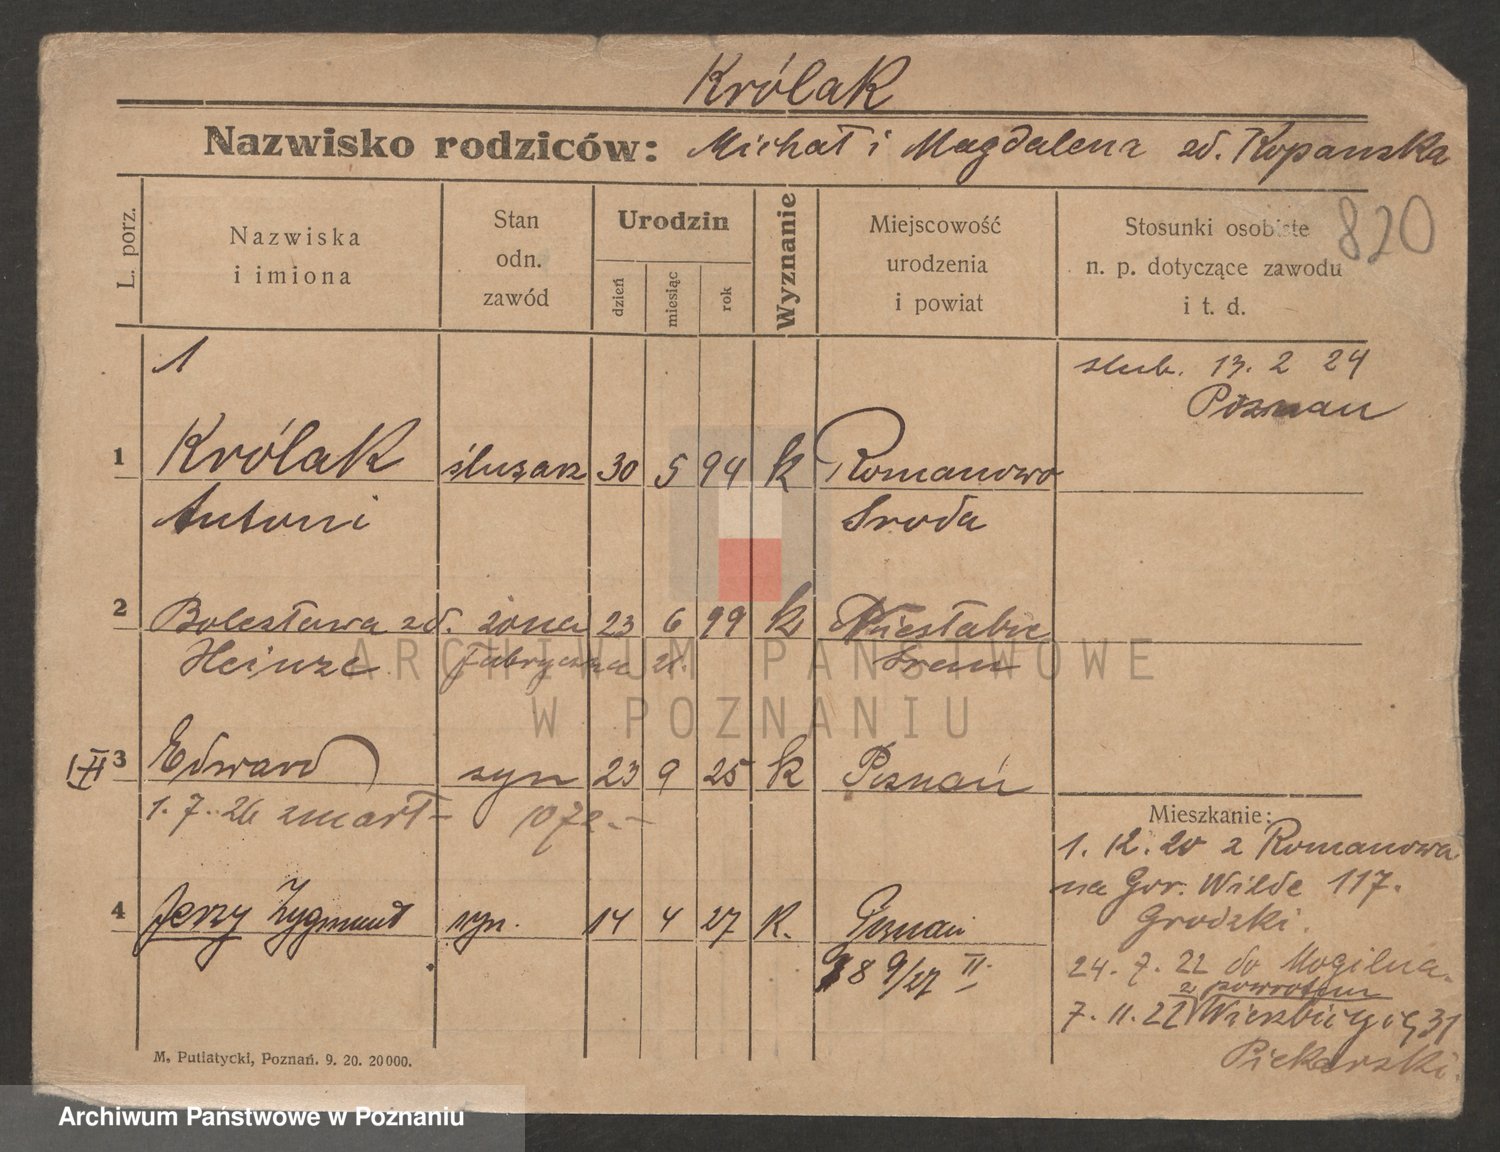 Królak
Nazwisko rodziców: Michał i Magdalena zd. Kopanska
L. porz.
Nazwiska
i imiona
Stan
odn.
zawód
Urodzin
dzień
miesiąc
rok
Wyznanie
Miejscowość
urodzenia
i powiat
Stosunki osobiste
n. p. dotyczące zawodu
i t. d.
820
1
slub. 13. 2 24
Poznan
1 Królak ślusarz 30 5 94 k Romanowo
Antoni Sroda
2 Bolesława zd. żona 23 6 99 k
Heinze Fabryczna 21. Srem
3 Edward syn 23 9 25 k Poznań
1. 7. 26 zmarł
4 Jerzy Zygmunt syn. 14 4 27 K. Poznań
8 9/27 II.
Mieszkanie:
1. 12. 20 z Romanowa
na Gor. Wilde 117.
Grodzki.
24. 7. 22 do Mogilna
z powrotem
7. 11. 22 31
Piekarski.
M. Putiatycki, Poznań. 9. 20. 20000.
ARCHIWUM PAŃSTWOWE
W POZNANIU
Archiwum Państwowe w Poznaniu